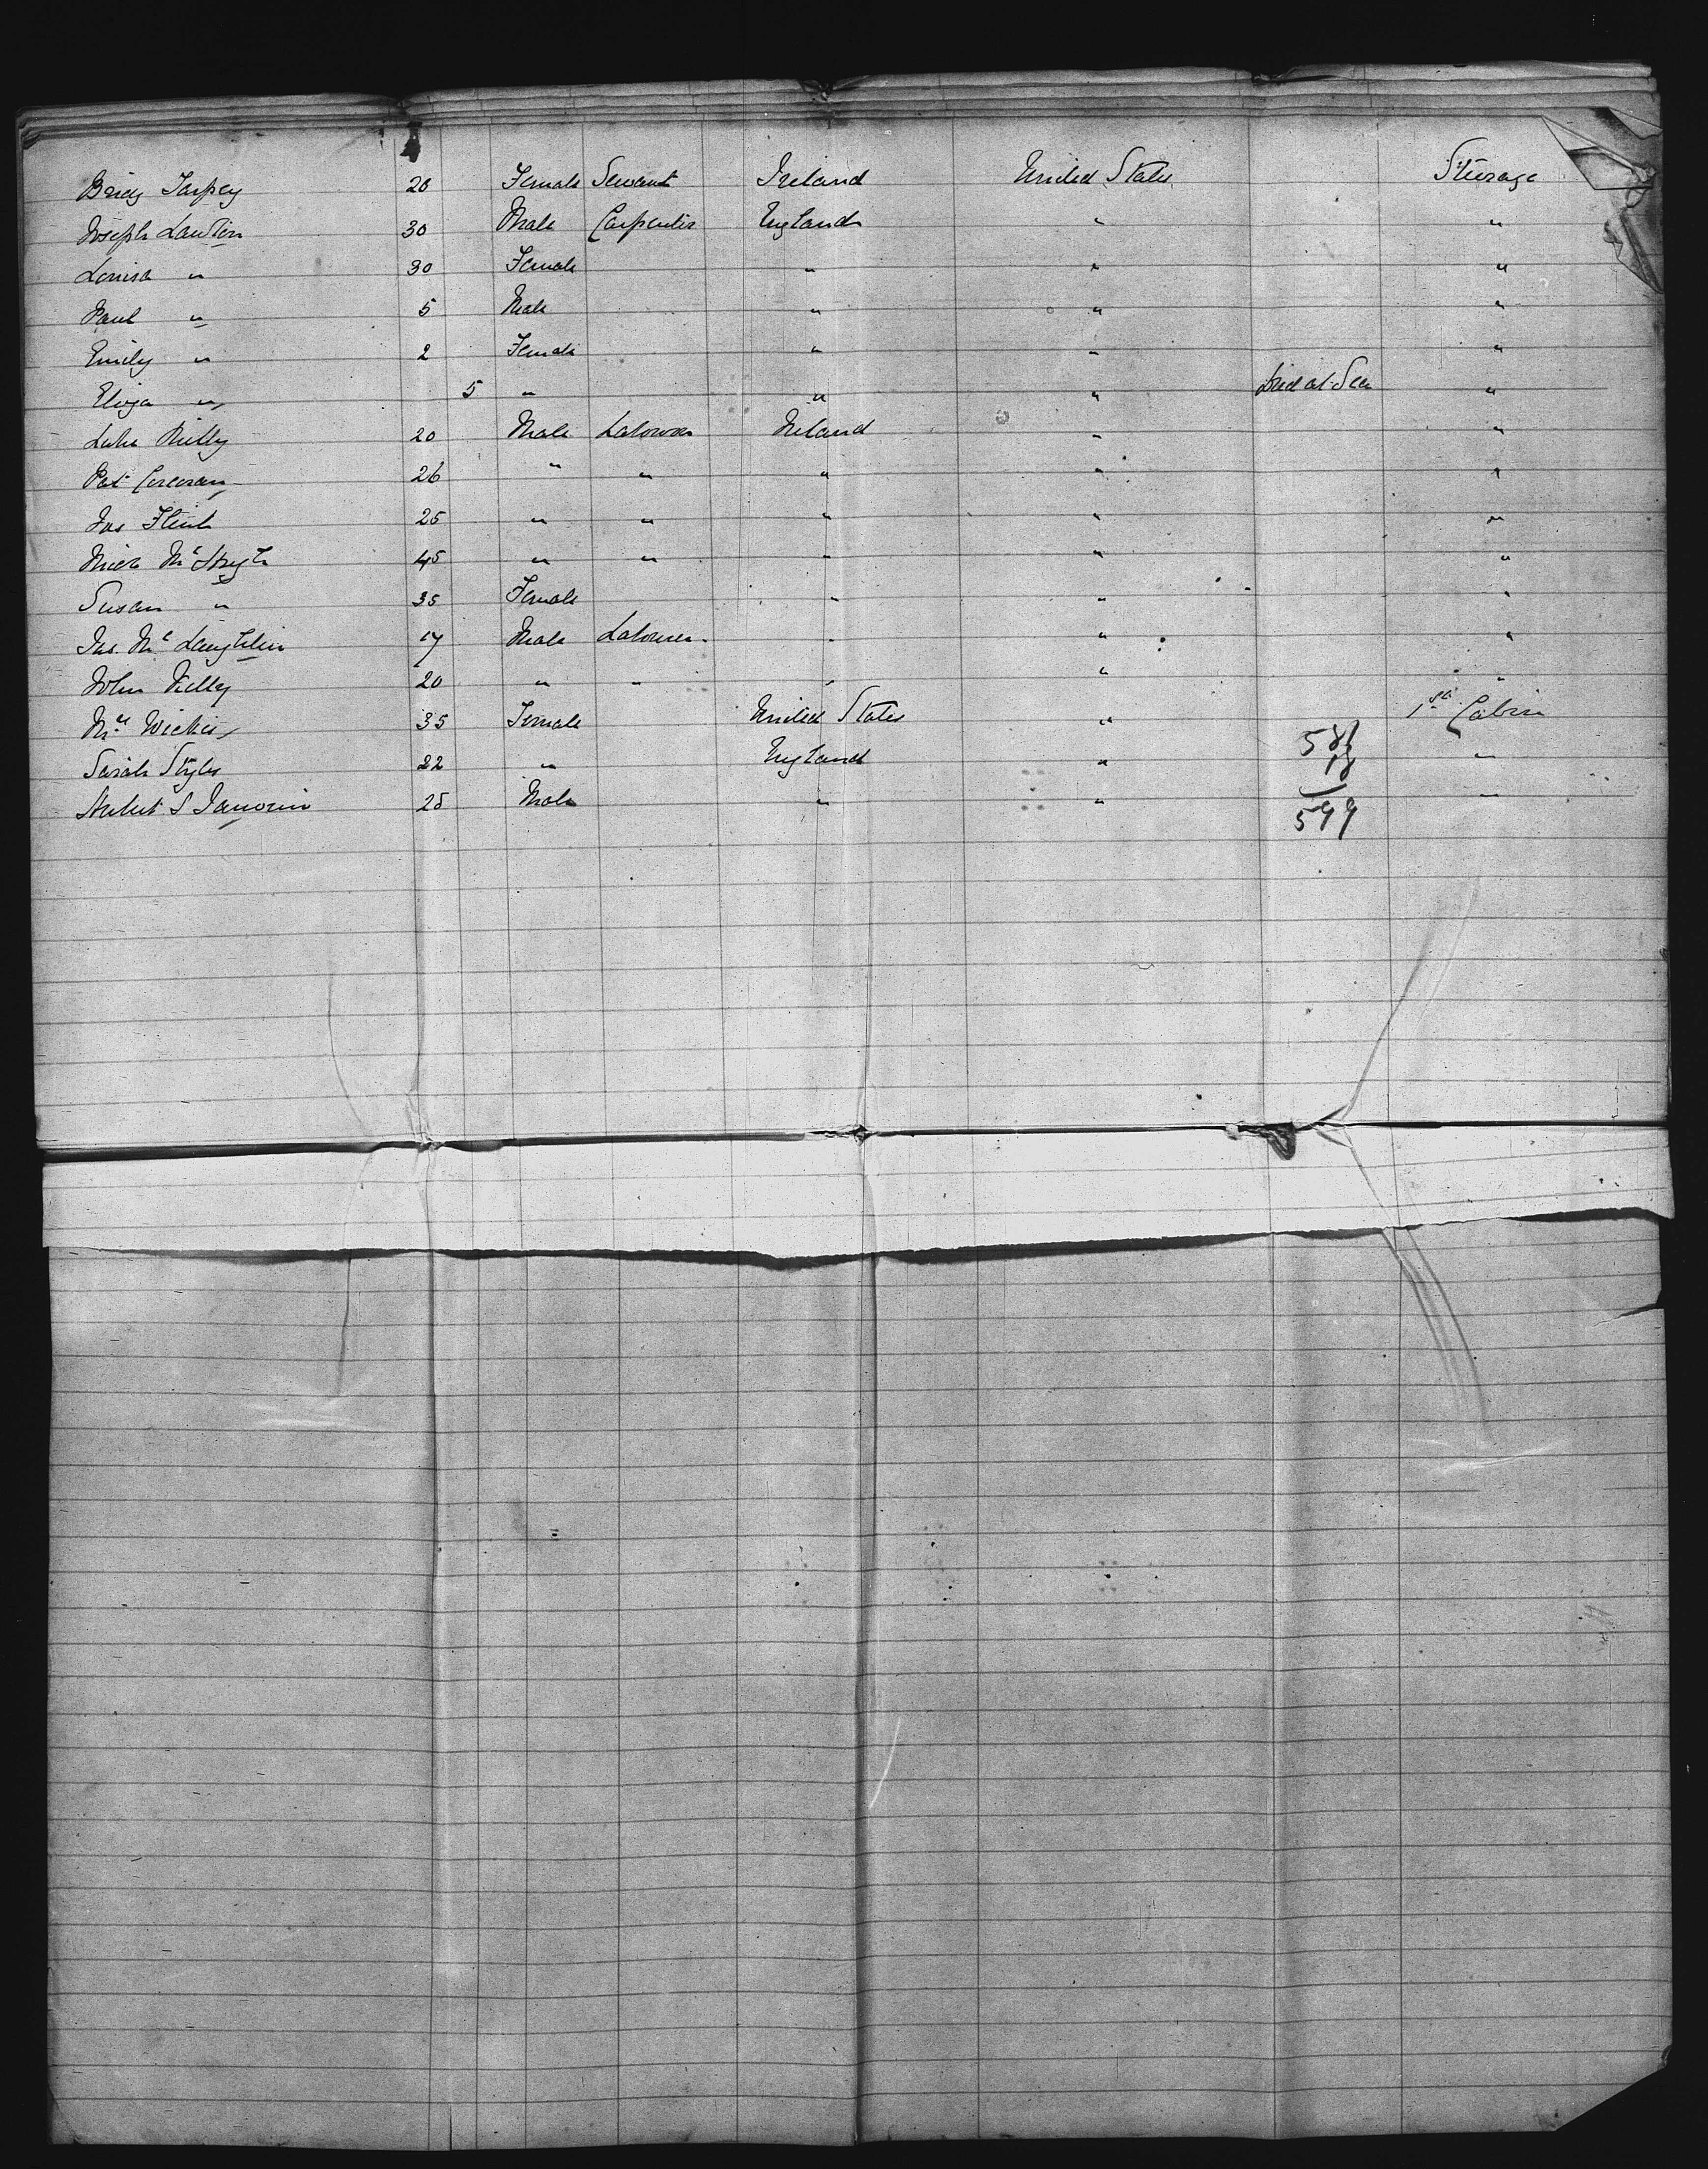 Bridg Tarpey 20 Female Servant Ireland United States Steerage
Joseph Lawton 30 Male Carpenter England " "
Louisa " 30 Female " " "
Paul " 5 Male " " "
Emily " 2 Female " " "
Eliza " 5 " " " Died at Sea "
Luke Reilly 20 Male Labourer Ireland " "
Pat Corcoran 26 " " " " "
Jas Flint 25 " " " " "
45 " " " " "
Susan " 35 Female " " "
Jas. Mc Laughlin 17 Male Labourer " " "
John Kelly 20 " " " " "
35 Female United States " 1st Cabin
Sarah Styles 22 " England " "
25 Male " " "
581
18
599